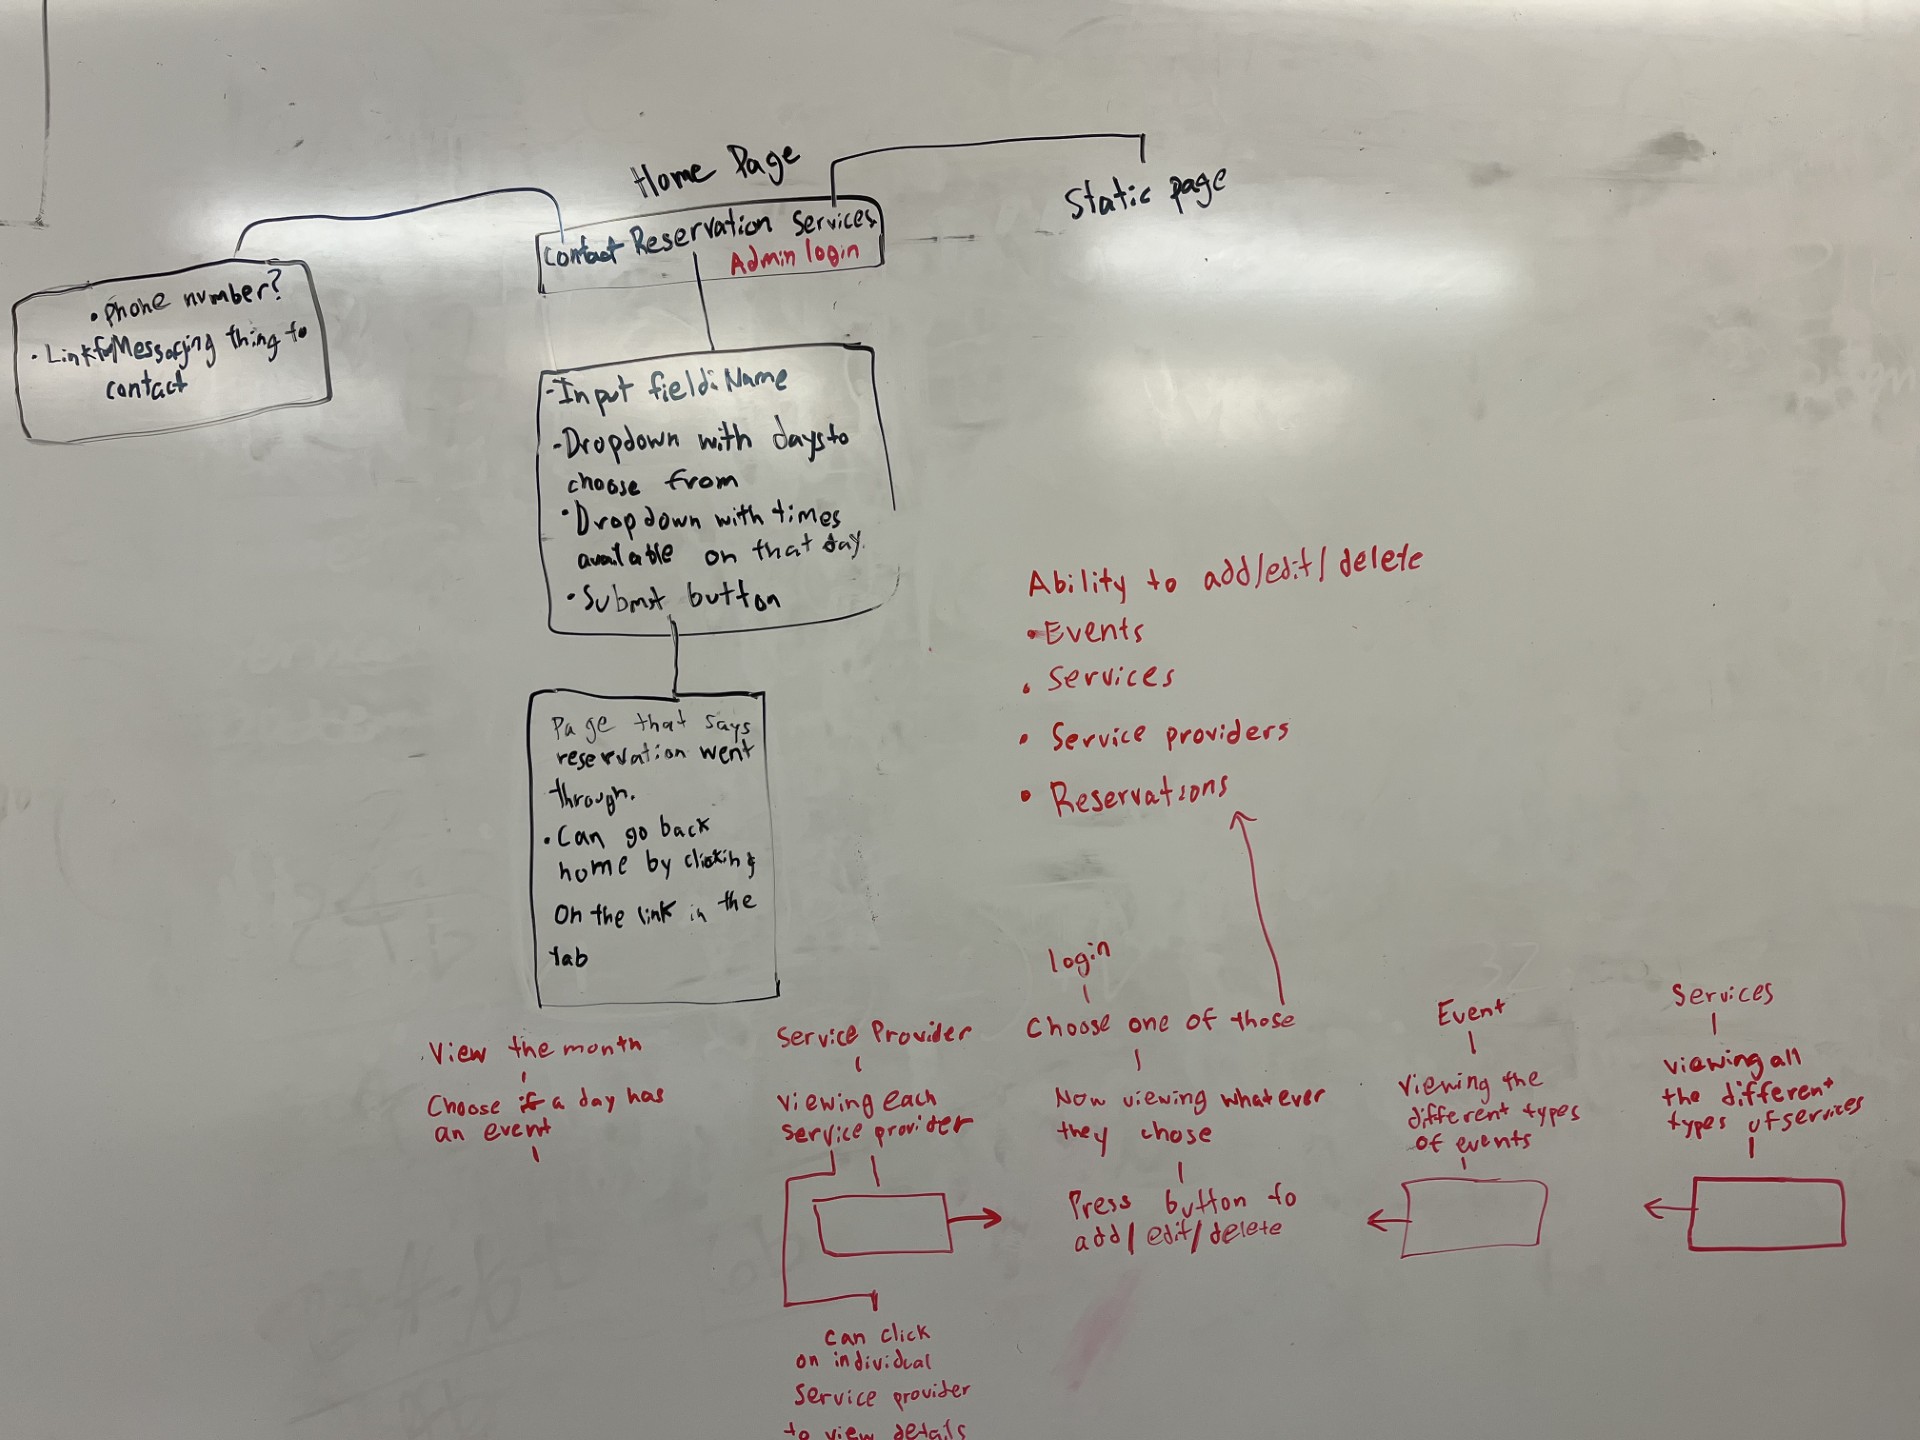 Home Page
Contact Reservation Services
Admin login
Static page
• phone number?
• Link for Messaging thing to
contact
-Input field: Name
-Dropdown with days to
choose from
• Dropdown with times
available on that day.
• Submit button
Page that says
reservation went
through.
• Can go back
home by clicking
on the link in the
tab
Ability to add/edit/delete
• Events
• Services
• Service providers
• Reservations
View the month
Choose if a day has
an event
Service Provider
viewing each
service provider
can click
on individual
service provider
to view details
login
Choose one of those
Now viewing whatever
they chose
Press button to
add/edit/delete
Event
viewing the
different types
of events
Services
viewing all
the different
types of services